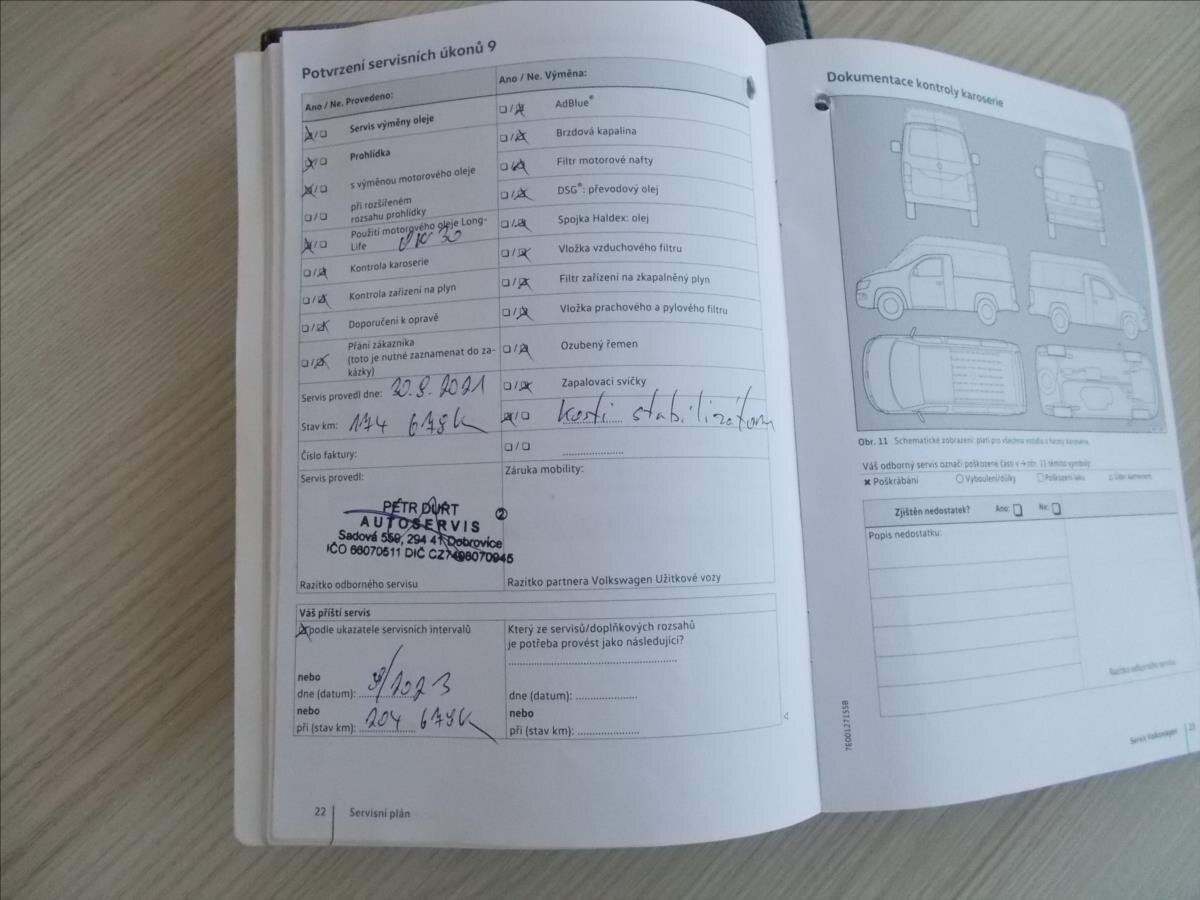 Potvrzení servisních úkonů 9
Ano / Ne. Provedeno:
Servis výměny oleje
Prohlídka
s výměnou motorového oleje
při rozšířeném
rozsahu prohlídky
Použití motorového oleje Long-
Life
Kontrola karoserie
Kontrola zařízení na plyn
Doporučení k opravě
Přání zákazníka
(toto je nutné zaznamenat do za-
kázky)
Servis provedl dne: 30.9.2021
Stav km: 174 678K
Číslo faktury:
Servis provedl:
PETR DURT
AUTOSERVIS
Sadová 559, 294 41 Dobrovice
IČO 66070511 DIČ CZ7408070945
②
Razítko odborného servisu
Ano / Ne. Výměna:
AdBlue®
Brzdová kapalina
Filtr motorové nafty
DSG®: převodový olej
Spojka Haldex: olej
Vložka vzduchového filtru
Filtr zařízení na zkapalněný plyn
Vložka prachového a pylového filtru
Ozubený řemen
Zapalovací svíčky
kosti stabilizátoru
Záruka mobility:
Razítko partnera Volkswagen Užitkové vozy
Váš příští servis
podle ukazatele servisních intervalů
nebo
dne (datum): 9/2023
nebo
při (stav km): 204 678K
Který ze servisů/doplňkových rozsahů
je potřeba provést jako následující?
dne (datum):
nebo
při (stav km):
22 Servisní plán
Dokumentace kontroly karoserie
Obr. 11 Schematické zobrazení: platí pro všechna vozidla s formy karoserie.
Váš odborný servis označí poškozené části v → obr. 11 těmito symboly:
Poškrábání Vyboulení/důlky Poškození laku Úder kamenem
Zjištěn nedostatek? Ano: Ne:
Popis nedostatku:
Razítko odborného servisu
7E0012715SB
Servis Volkswagen 23